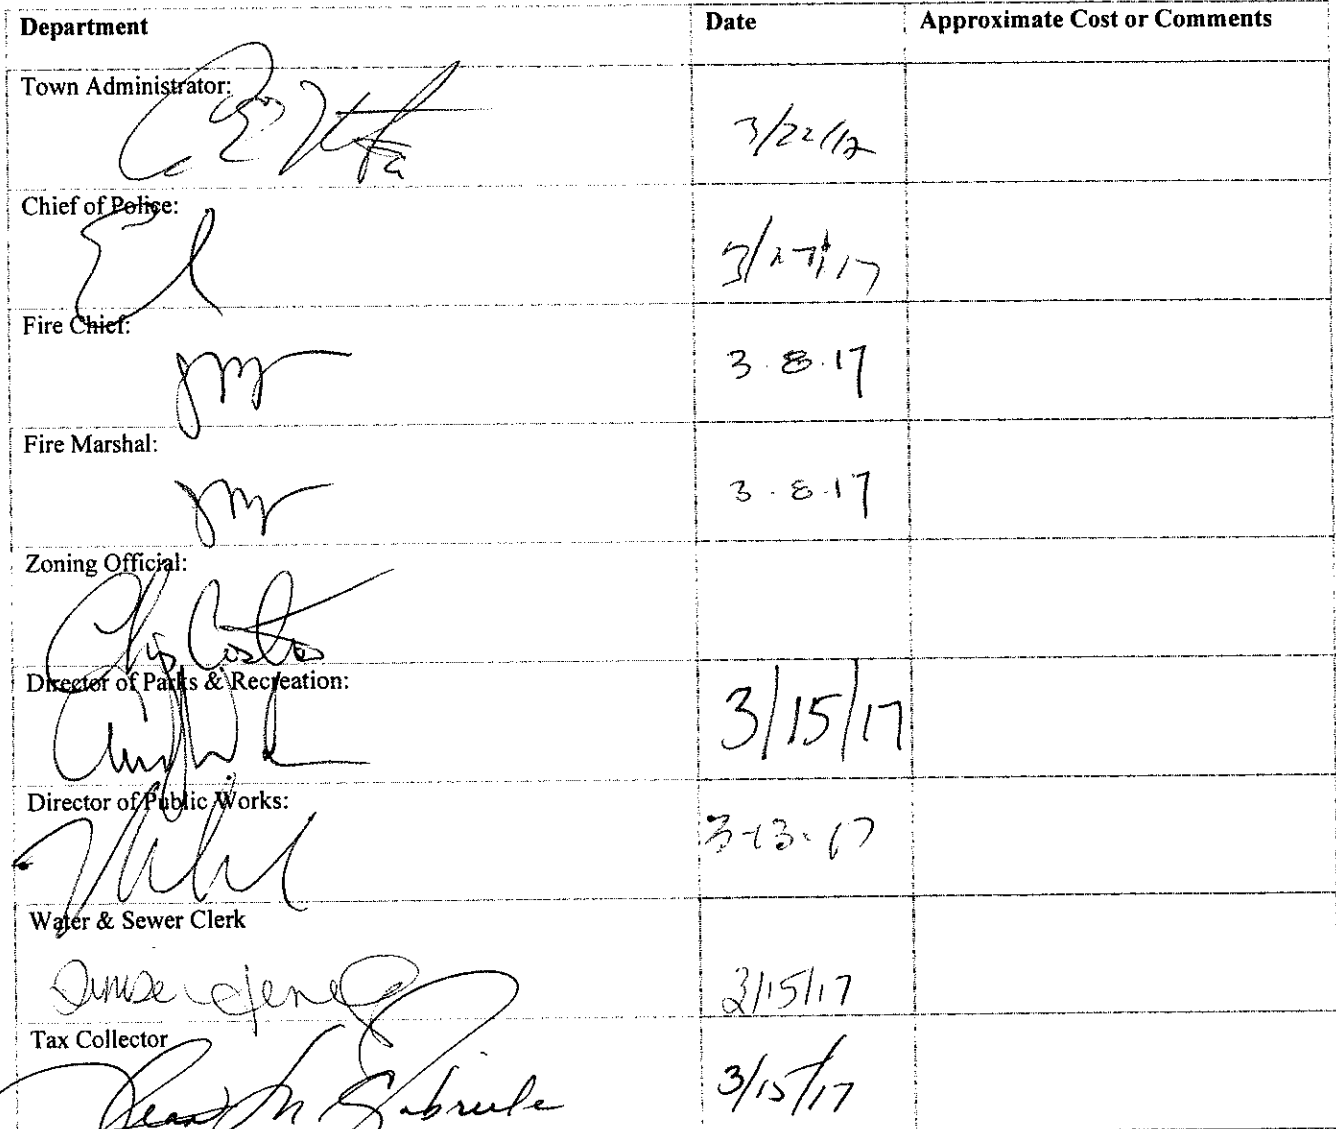 Department Date Approximate Cost or Comments
Town Administrator:
3/22/17
Chief of Police:
3/27/17
Fire Chief:
3.8.17
Fire Marshal:
3.8.17
Zoning Official:
Chip Costa
Director of Parks & Recreation:
3/15/17
Director of Public Works:
3-13-17
Water & Sewer Clerk
Denise 3/15/17
Tax Collector
Jean M Gabriele 3/15/17